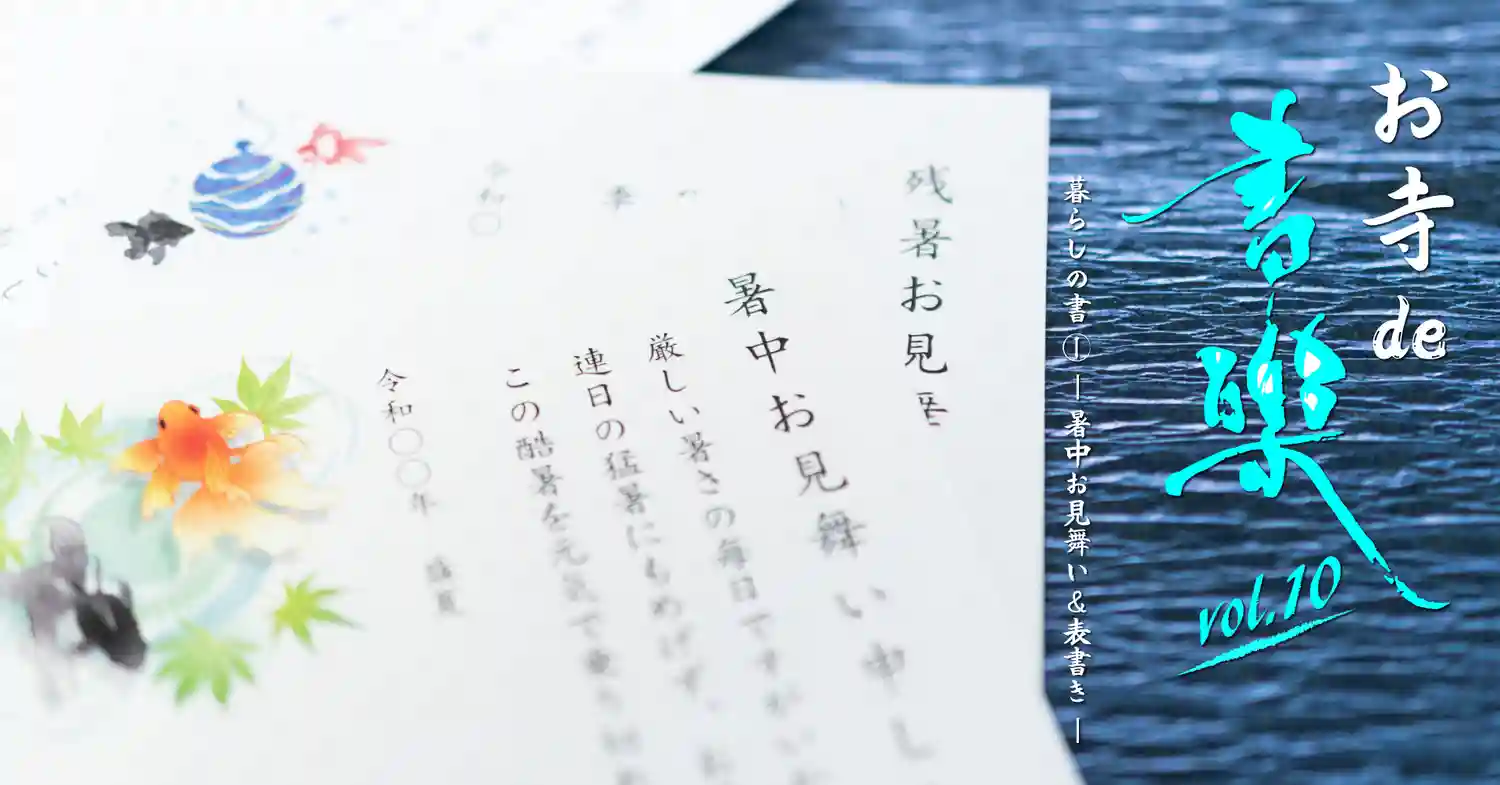 お寺de
書樂
vol.10
暮らしの書①ー暑中お見舞い&表書きー
残暑お見
暑中お見舞い申し
厳しい暑さの毎日ですが
連日の猛暑にもめげず、
この酷暑を元気で乗り
令和〇〇年 盛夏